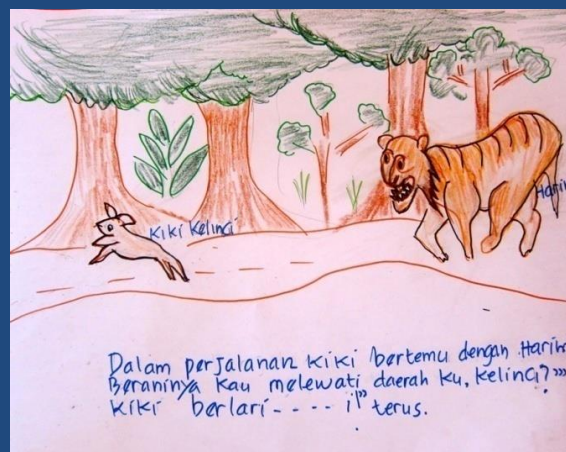 Kiki Kelinci
Dalam perjalanan Kiki bertemu dengan
Beraninya kau melewati daerah ku, kelinci?"
Kiki berlari---- i" terus.